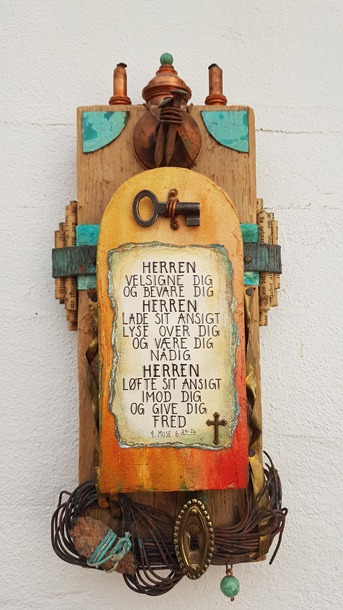 HERREN
VELSIGNE DIG
OG BEVARE DIG
HERREN
LADE SIT ANSIGT
LYSE OVER DIG
OG VÆRE DIG
NÅDIG
HERREN
LØFTE SIT ANSIGT
IMOD DIG
OG GIVE DIG
FRED
4. MOSE. 6. 24-26